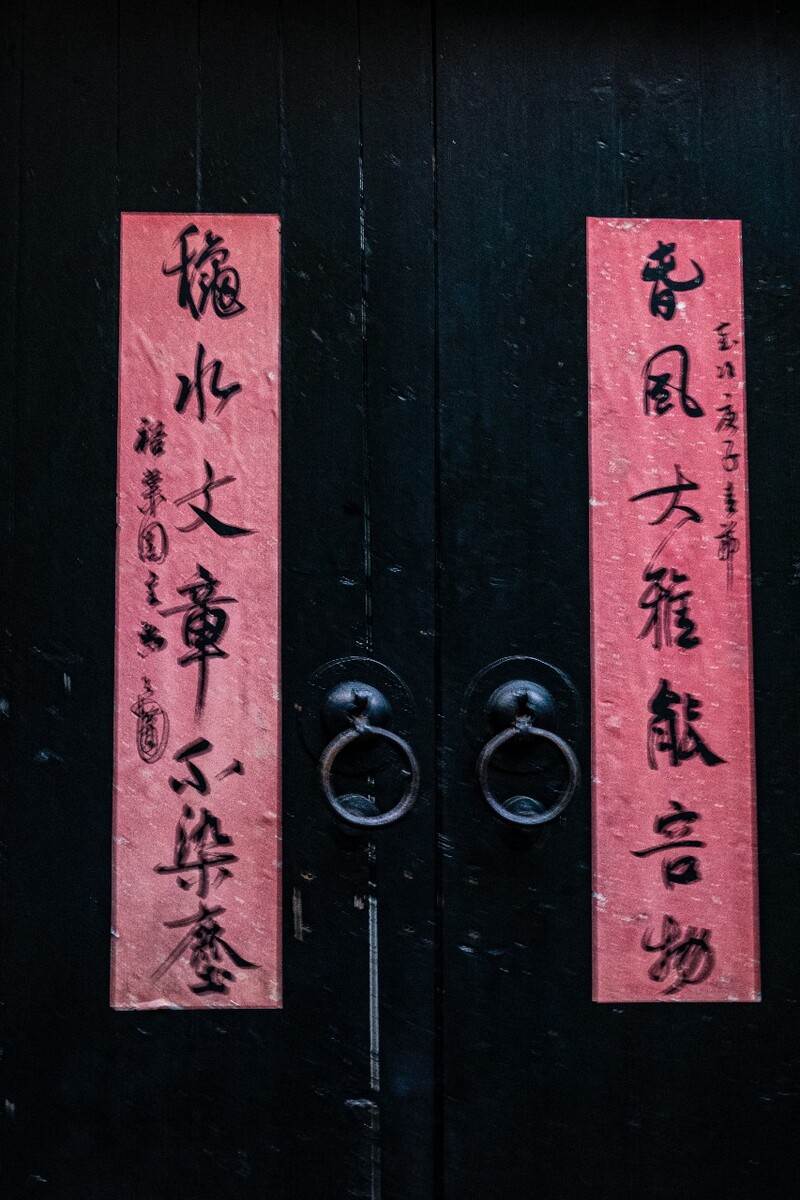 春風大雅能容物
庚子春節
穐水文章不染塵